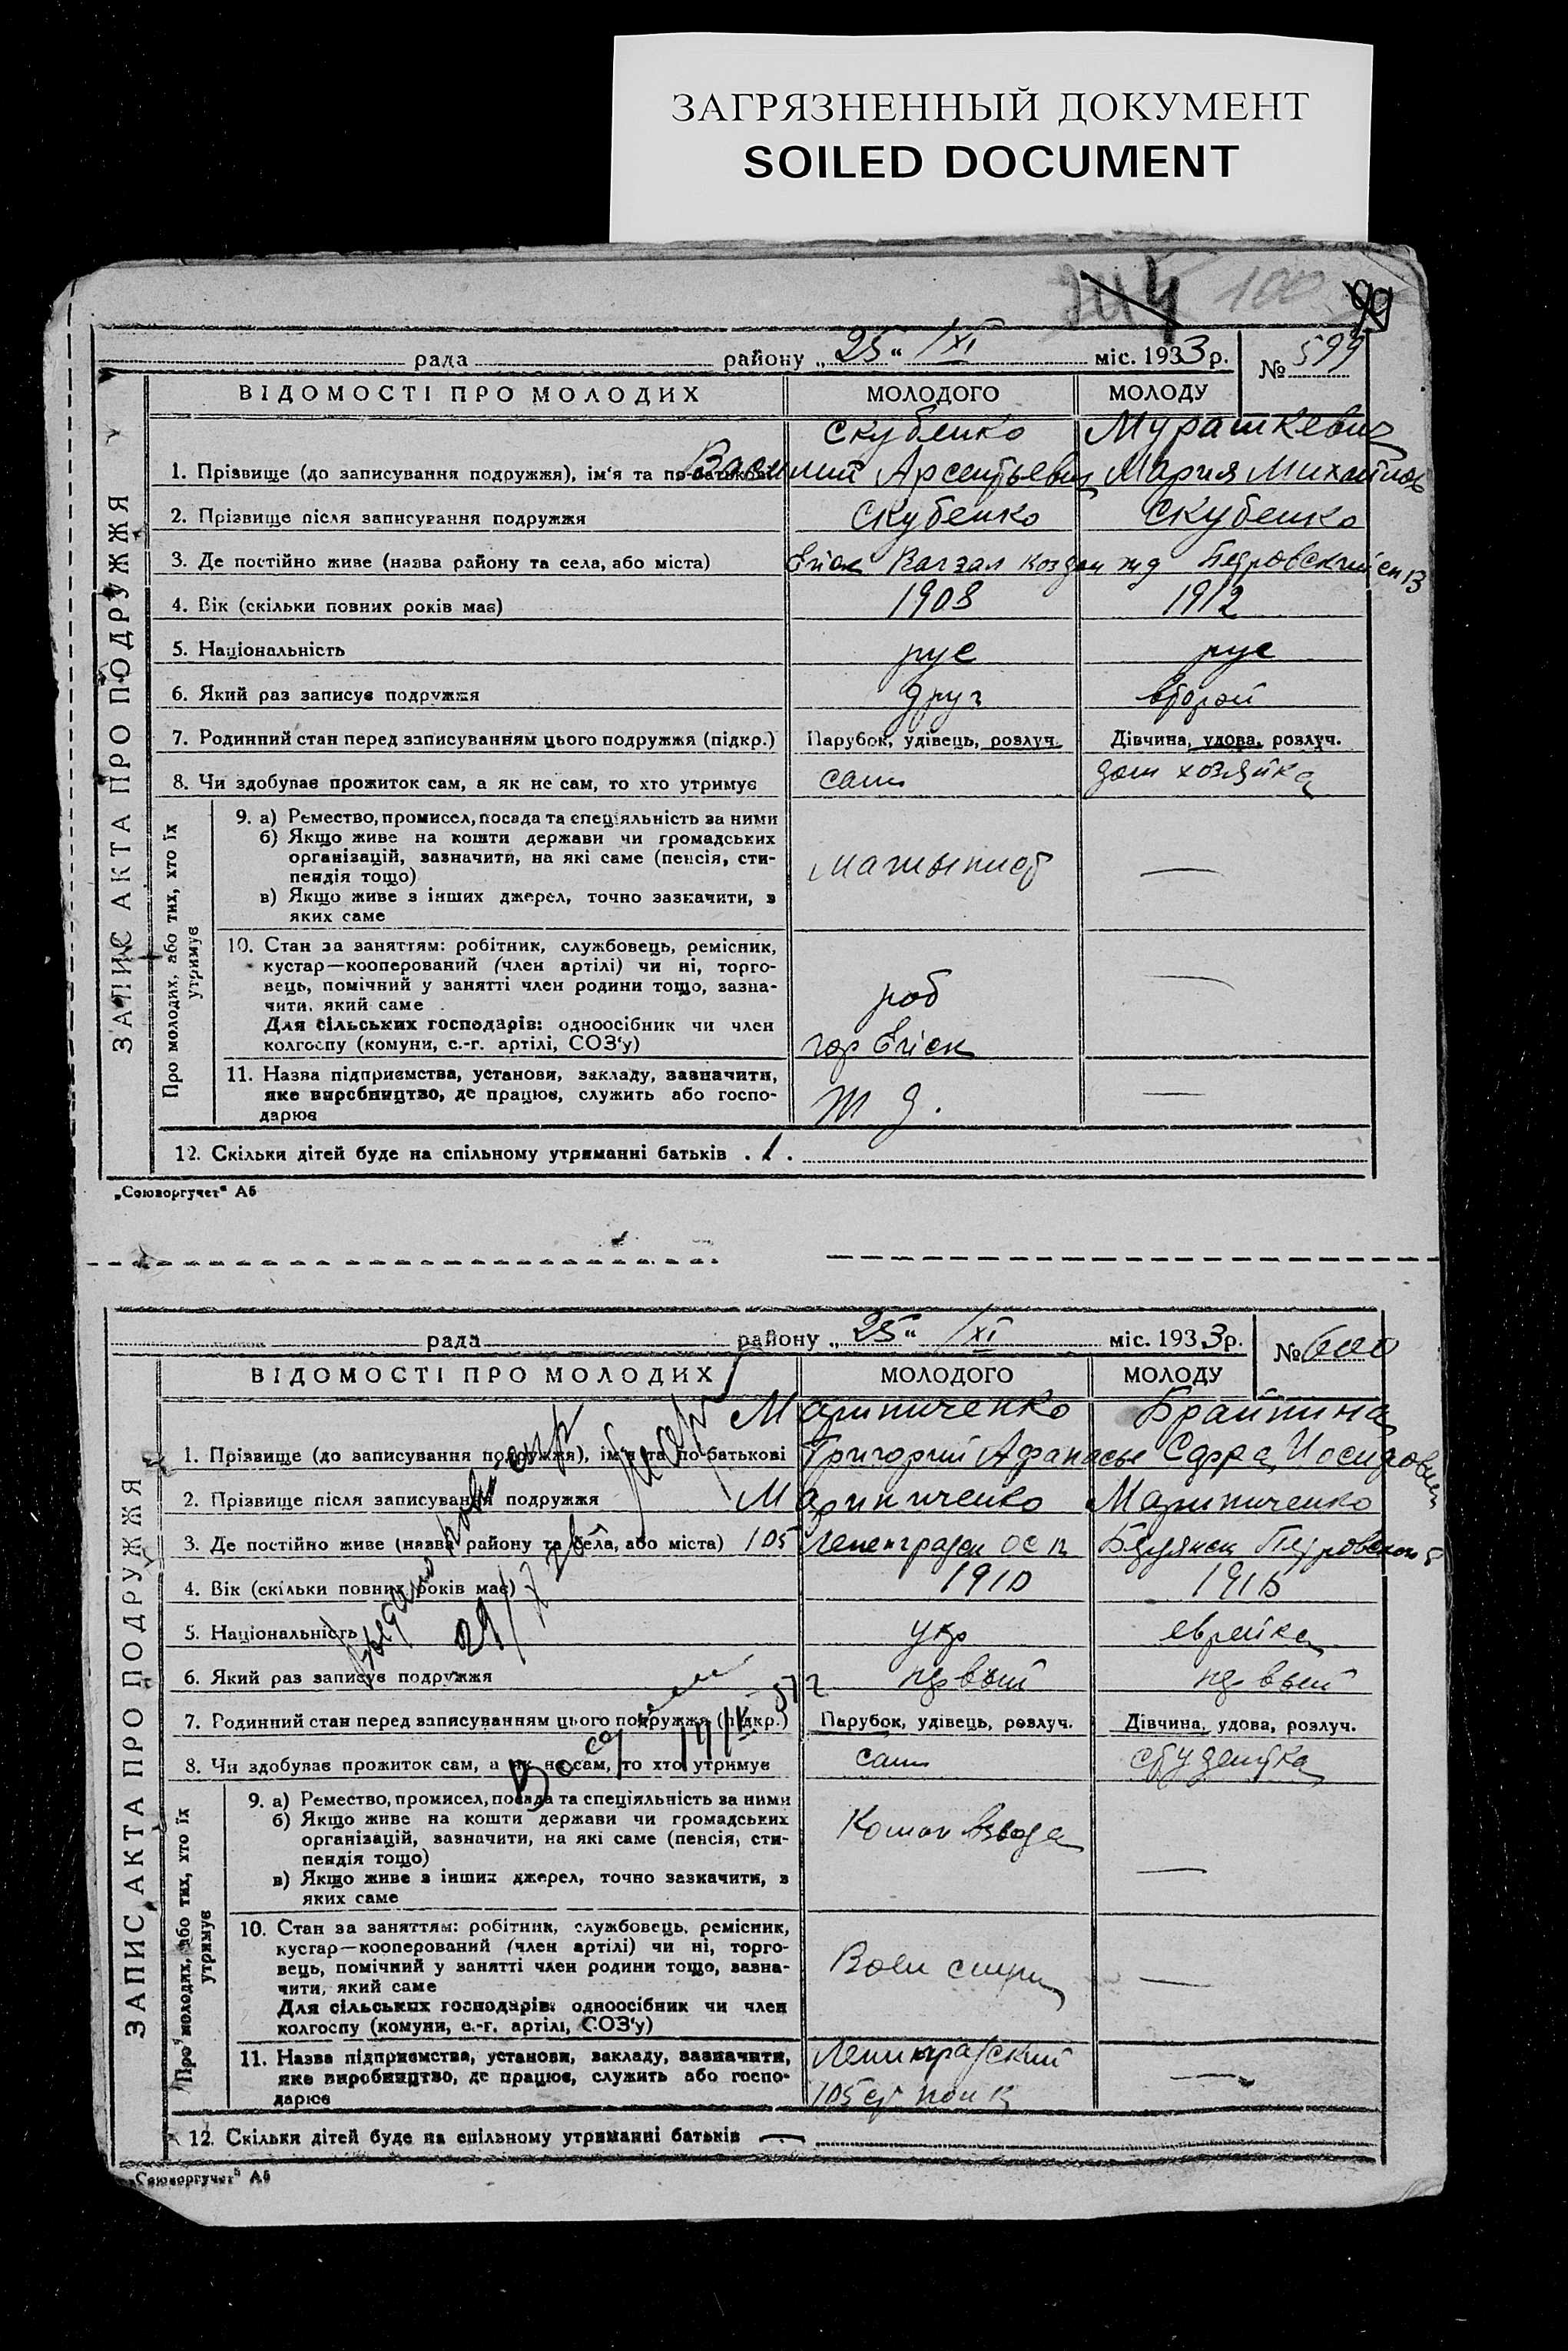 ЗАГРЯЗНЕННЫЙ ДОКУМЕНТ
SOILED DOCUMENT
100 99
рада району „25“ /XI міс. 1933 р. № 599
ВІДОМОСТІ ПРО МОЛОДИХ МОЛОДОГО МОЛОДУ
ЗАПИС АКТА ПРО ПОДРУЖЖЯ
Скубенко Мурашкевич
1. Прізвище (до записування подружжя), ім'я та по-батькові Василий Арсентьевич Мария Михайлов
2. Прізвище після записування подружжя Скубенко Скубенко
3. Де постійно живе (назва району та села, або міста) Вагзал жд Петровский 13
4. Вік (скільки повних років має) 1908 1912
5. Національність рус рус
6. Який раз записує подружжя друг второй
7. Родинний стан перед записуванням цього подружжя (підкр.) Парубок, удівець, розлуч. Дівчина, удова, розлуч.
8. Чи здобуває прожиток сам, а як не сам, то хто утримує сам дом хозяйка
Про молодих, або тих, хто їх утримує
9. а) Ремество, промисел, посада та спеціяльність за ними
б) Якщо живе на кошти держави чи громадських
організацій, зазначити, на які саме (пенсія, сти-
пендія тощо) машинист —
в) Якщо живе з інших джерел, точно зазначити, з
яких саме
10. Стан за заняттям: робітник, службовець, ремісник,
кустар—кооперований (член артілі) чи ні, торго-
вець, помічний у занятті член родини тощо, зазна-
чити, який саме роб —
Для сільських господарів: одноосібник чи член
колгоспу (комуни, с.-г. артілі, СОЗ'у) гор
11. Назва підприємства, установи, закладу, зазначити,
яке виробництво, де працює, служить або госпо-
дарює ж д. —
12. Скільки дітей буде на спільному утриманні батьків . 1 .
„Союзоргучет“ А6
рада району „25“ /XI міс. 1933 р. № 600
ВІДОМОСТІ ПРО МОЛОДИХ МОЛОДОГО МОЛОДУ
ЗАПИС АКТА ПРО ПОДРУЖЖЯ
Мариниченко Брайнина
1. Прізвище (до записування подружжя), ім'я та по-батькові Григорий Афанасье Сарра Иосифовн
2. Прізвище після записування подружжя Мариниченко Мариниченко
3. Де постійно живе (назва району та села, або міста) 105 Ленинград Бердянск Петровского 8
4. Вік (скільки повних років має) 1910
5. Національність укр еврейка
6. Який раз записує подружжя первый первый
7. Родинний стан перед записуванням цього подружжя (підкр.) Парубок, удівець, розлуч. Дівчина, удова, розлуч.
8. Чи здобуває прожиток сам, а як не сам, то хто утримує сам студентка
Про молодих, або тих, хто їх утримує
9. а) Ремество, промисел, посада та спеціяльність за ними
б) Якщо живе на кошти держави чи громадських
організацій, зазначити, на які саме (пенсія, сти-
пендія тощо) Коман взвода —
в) Якщо живе з інших джерел, точно зазначити, з
яких саме
10. Стан за заняттям: робітник, службовець, ремісник,
кустар—кооперований (член артілі) чи ні, торго-
вець, помічний у занятті член родини тощо, зазна-
чити, який саме —
Для сільських господарів: одноосібник чи член
колгоспу (комуни, с.-г. артілі, СОЗ'у)
11. Назва підприємства, установи, закладу, зазначити, Ленинградский
яке виробництво, де працює, служить або госпо-
дарює 105 —
12. Скільки дітей буде на спільному утриманні батьків —
„Союзоргучет“ А6